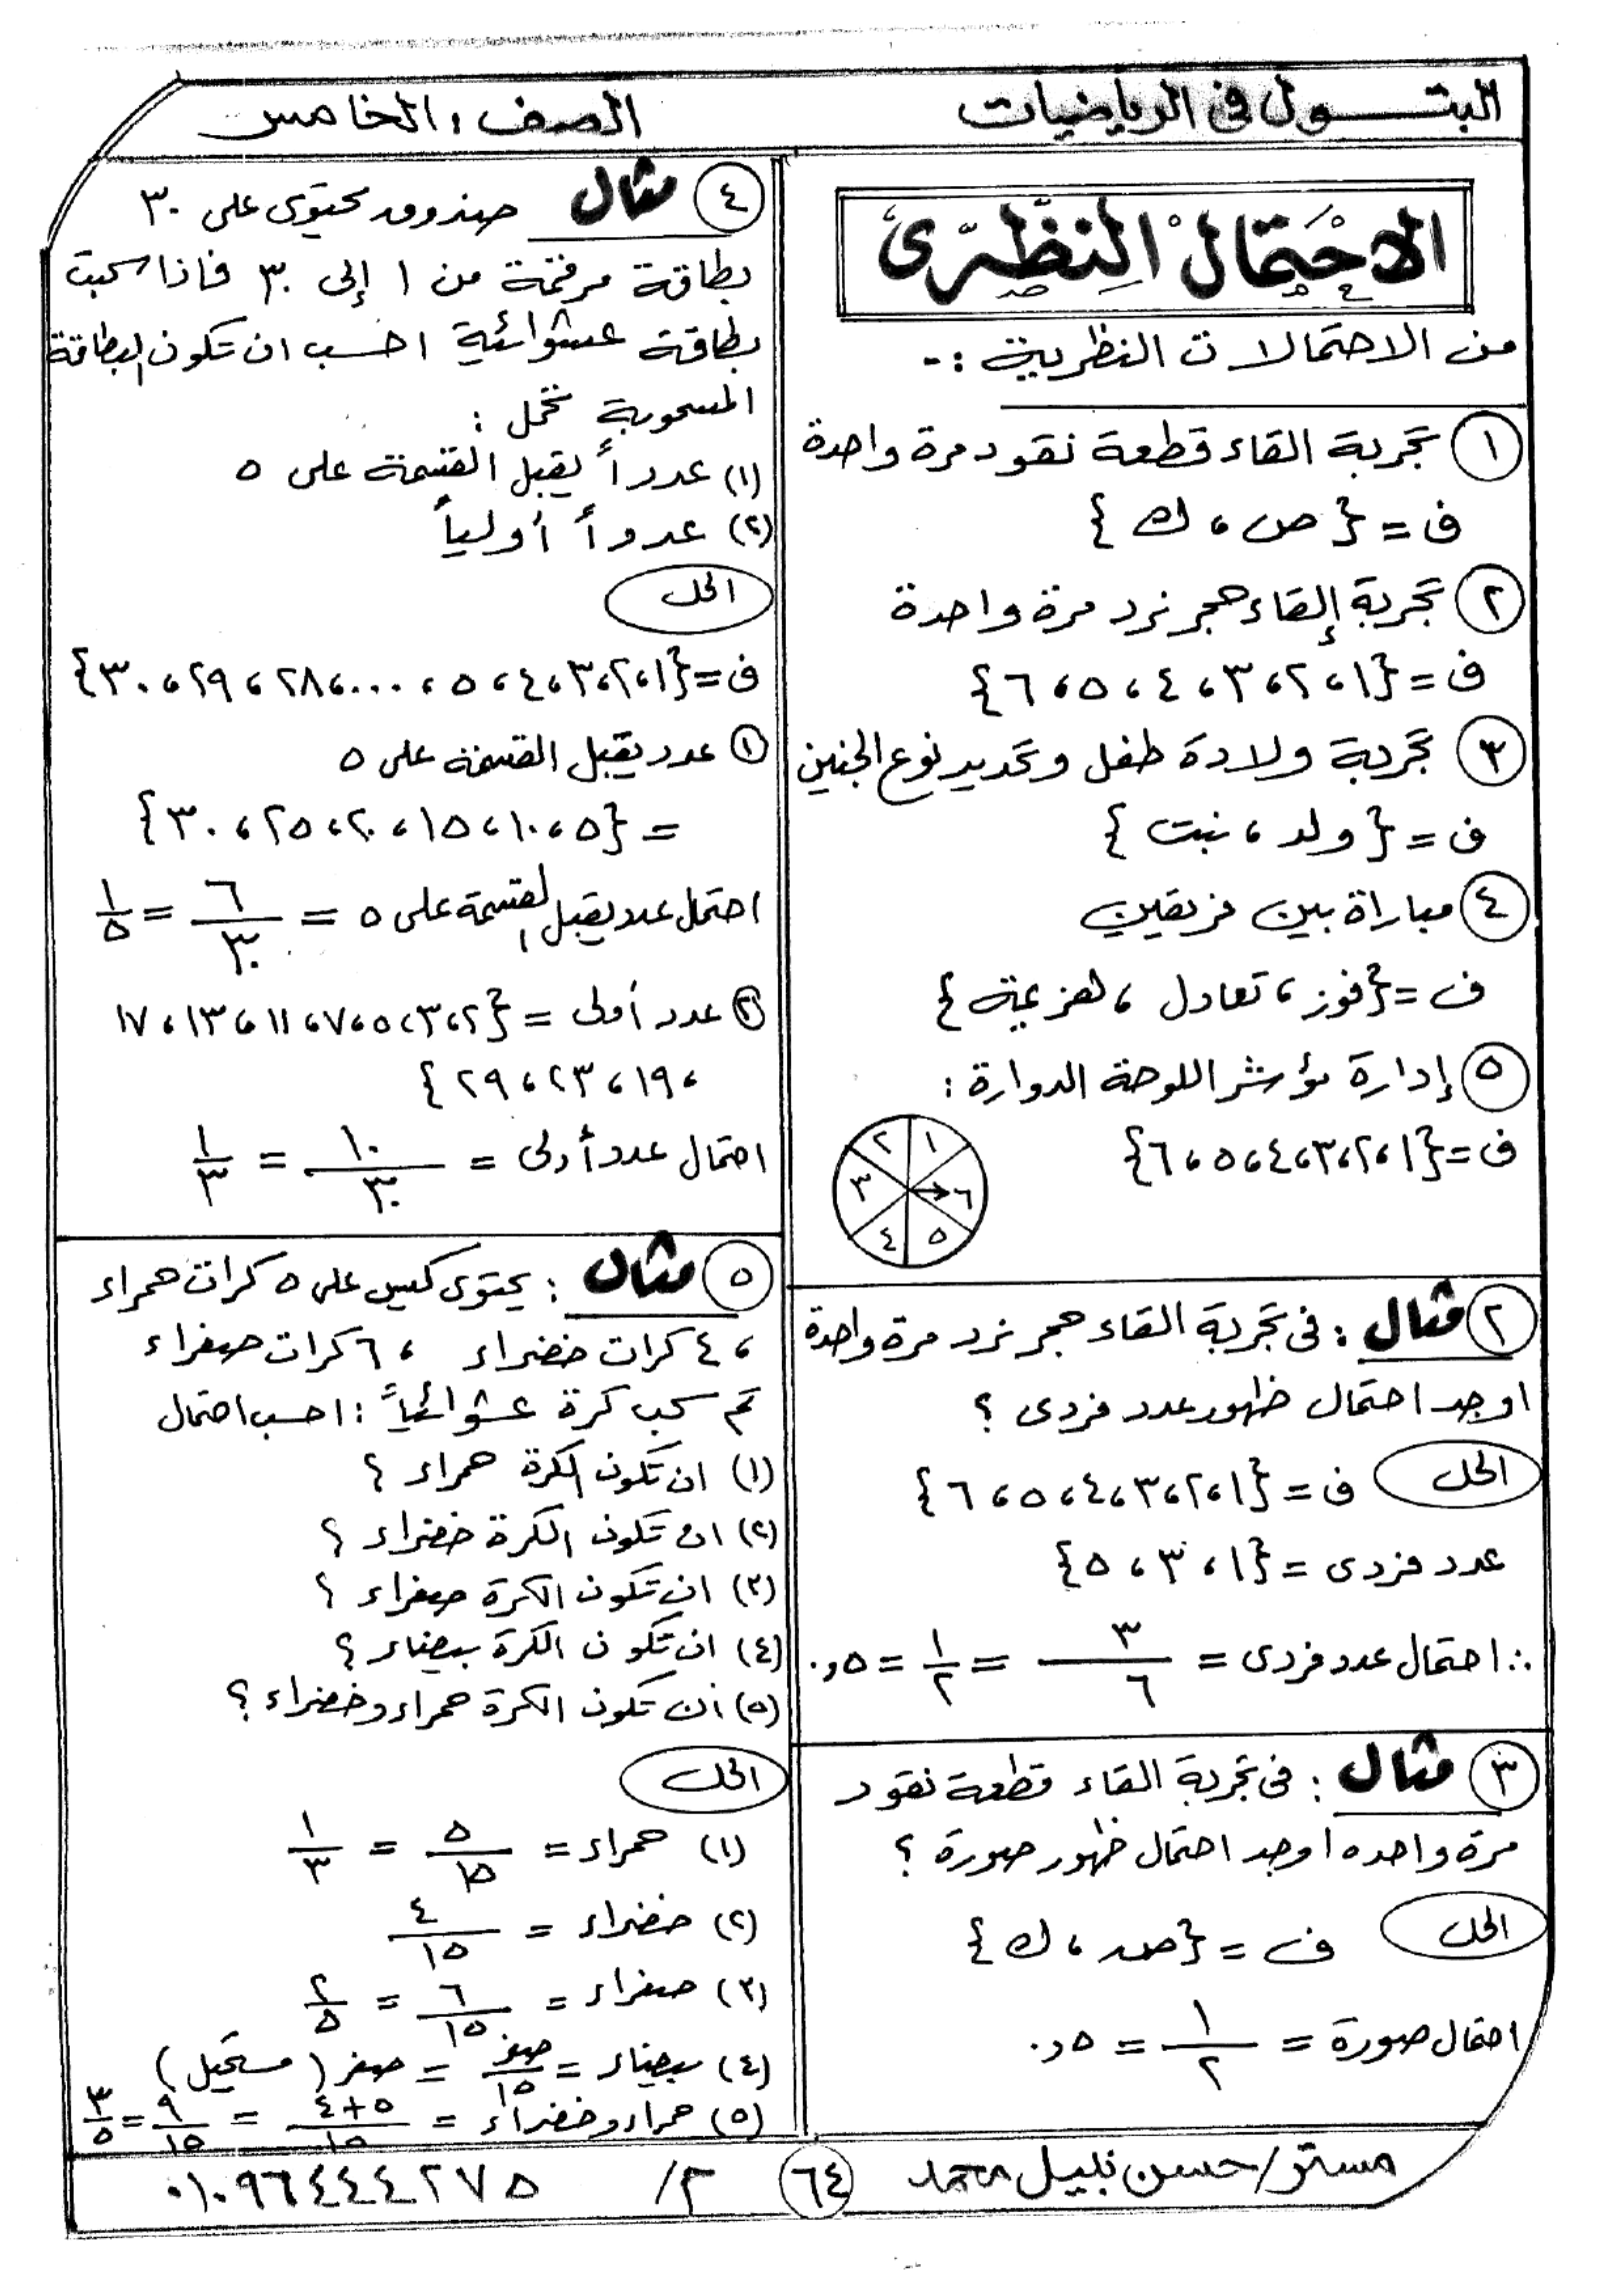 البتول فى الرياضيات
الصف الخامس
الاحتمال النظرى
من الاحتمالات النظرية :-
١ تجربة القاء قطعة نقود مرة واحدة
ف = { ص ، ك }
٢ تجربة إلقاء حجر نرد مرة واحدة
ف = {١ ، ٢ ، ٣ ، ٤ ، ٥ ، ٦}
٣ تجربة ولادة طفل وتحديد نوع الجنين
ف = { ولد ، بنت }
٤ مباراة بين فريقين
ف = {فوز ، تعادل ، هزيمة }
٥ إدارة مؤشر اللوحة الدوارة :
ف = {١ ، ٢ ، ٣ ، ٤ ، ٥ ، ٦}
١ ٢ ٣ ٤ ٥ ٦
٢ مثال : فى تجربة القاء حجر نرد مرة واحدة
اوجد احتمال ظهور عدد فردى ؟
الحل ف = {١ ، ٢ ، ٣ ، ٤ ، ٥ ، ٦}
عدد فردى = {١ ، ٣ ، ٥}
∴ احتمال عدد فردى = ٣/٦ = ١/٢ = ٠,٥
٣ مثال : فى تجربة القاء قطعة نقود
مرة واحده اوجد احتمال ظهور صورة ؟
الحل ف = {ص ، ك }
احتمال صورة = ١/٢ = ٠,٥
٤ مثال صندوق يحتوى على ٣٠
بطاقة مرقمة من ١ إلى ٣٠ فاذا سحبت
بطاقة عشوائية احسب ان تكون البطاقة
المسحوبة تحمل :
(١) عدداً يقبل القسمة على ٥
(٢) عدداً أولياً
الحل
ف = {١ ، ٢ ، ٣ ، ٤ ، ٥ ، ... ، ٢٨ ، ٢٩ ، ٣٠}
١ عدد يقبل القسمة على ٥
= {٥ ، ١٠ ، ١٥ ، ٢٠ ، ٢٥ ، ٣٠}
احتمال عدد يقبل القسمة على ٥ = ٦/٣٠ = ١/٥
٢ عدد أولى = {٢ ، ٣ ، ٥ ، ٧ ، ١١ ، ١٣ ، ١٧
، ١٩ ، ٢٣ ، ٢٩ }
احتمال عدد أولى = ١٠/٣٠ = ١/٣
٥ مثال : يحتوى كيس على ٥ كرات حمراء
، ٤ كرات خضراء ، ٦ كرات صفراء
تم سحب كرة عشوائياً : احسب احتمال
(١) ان تكون الكرة حمراء ؟
(٢) ان تكون الكرة خضراء ؟
(٣) ان تكون الكرة صفراء ؟
(٤) ان تكون الكرة بيضاء ؟
(٥) ان تكون الكرة حمراء وخضراء ؟
الحل
(١) حمراء = ٥/١٥ = ١/٣
(٢) خضراء = ٤/١٥
(٣) صفراء = ٦/١٥ = ٢/٥
(٤) بيضاء = صفر/١٥ = صفر ( مستحيل )
(٥) حمراء وخضراء = ٥+٤/١٥ = ٩/١٥ = ٣/٥
مستر/حسن نبيل محمد
٦٤
م/ ٠١٠٩٦٤٤٤٢٧٥